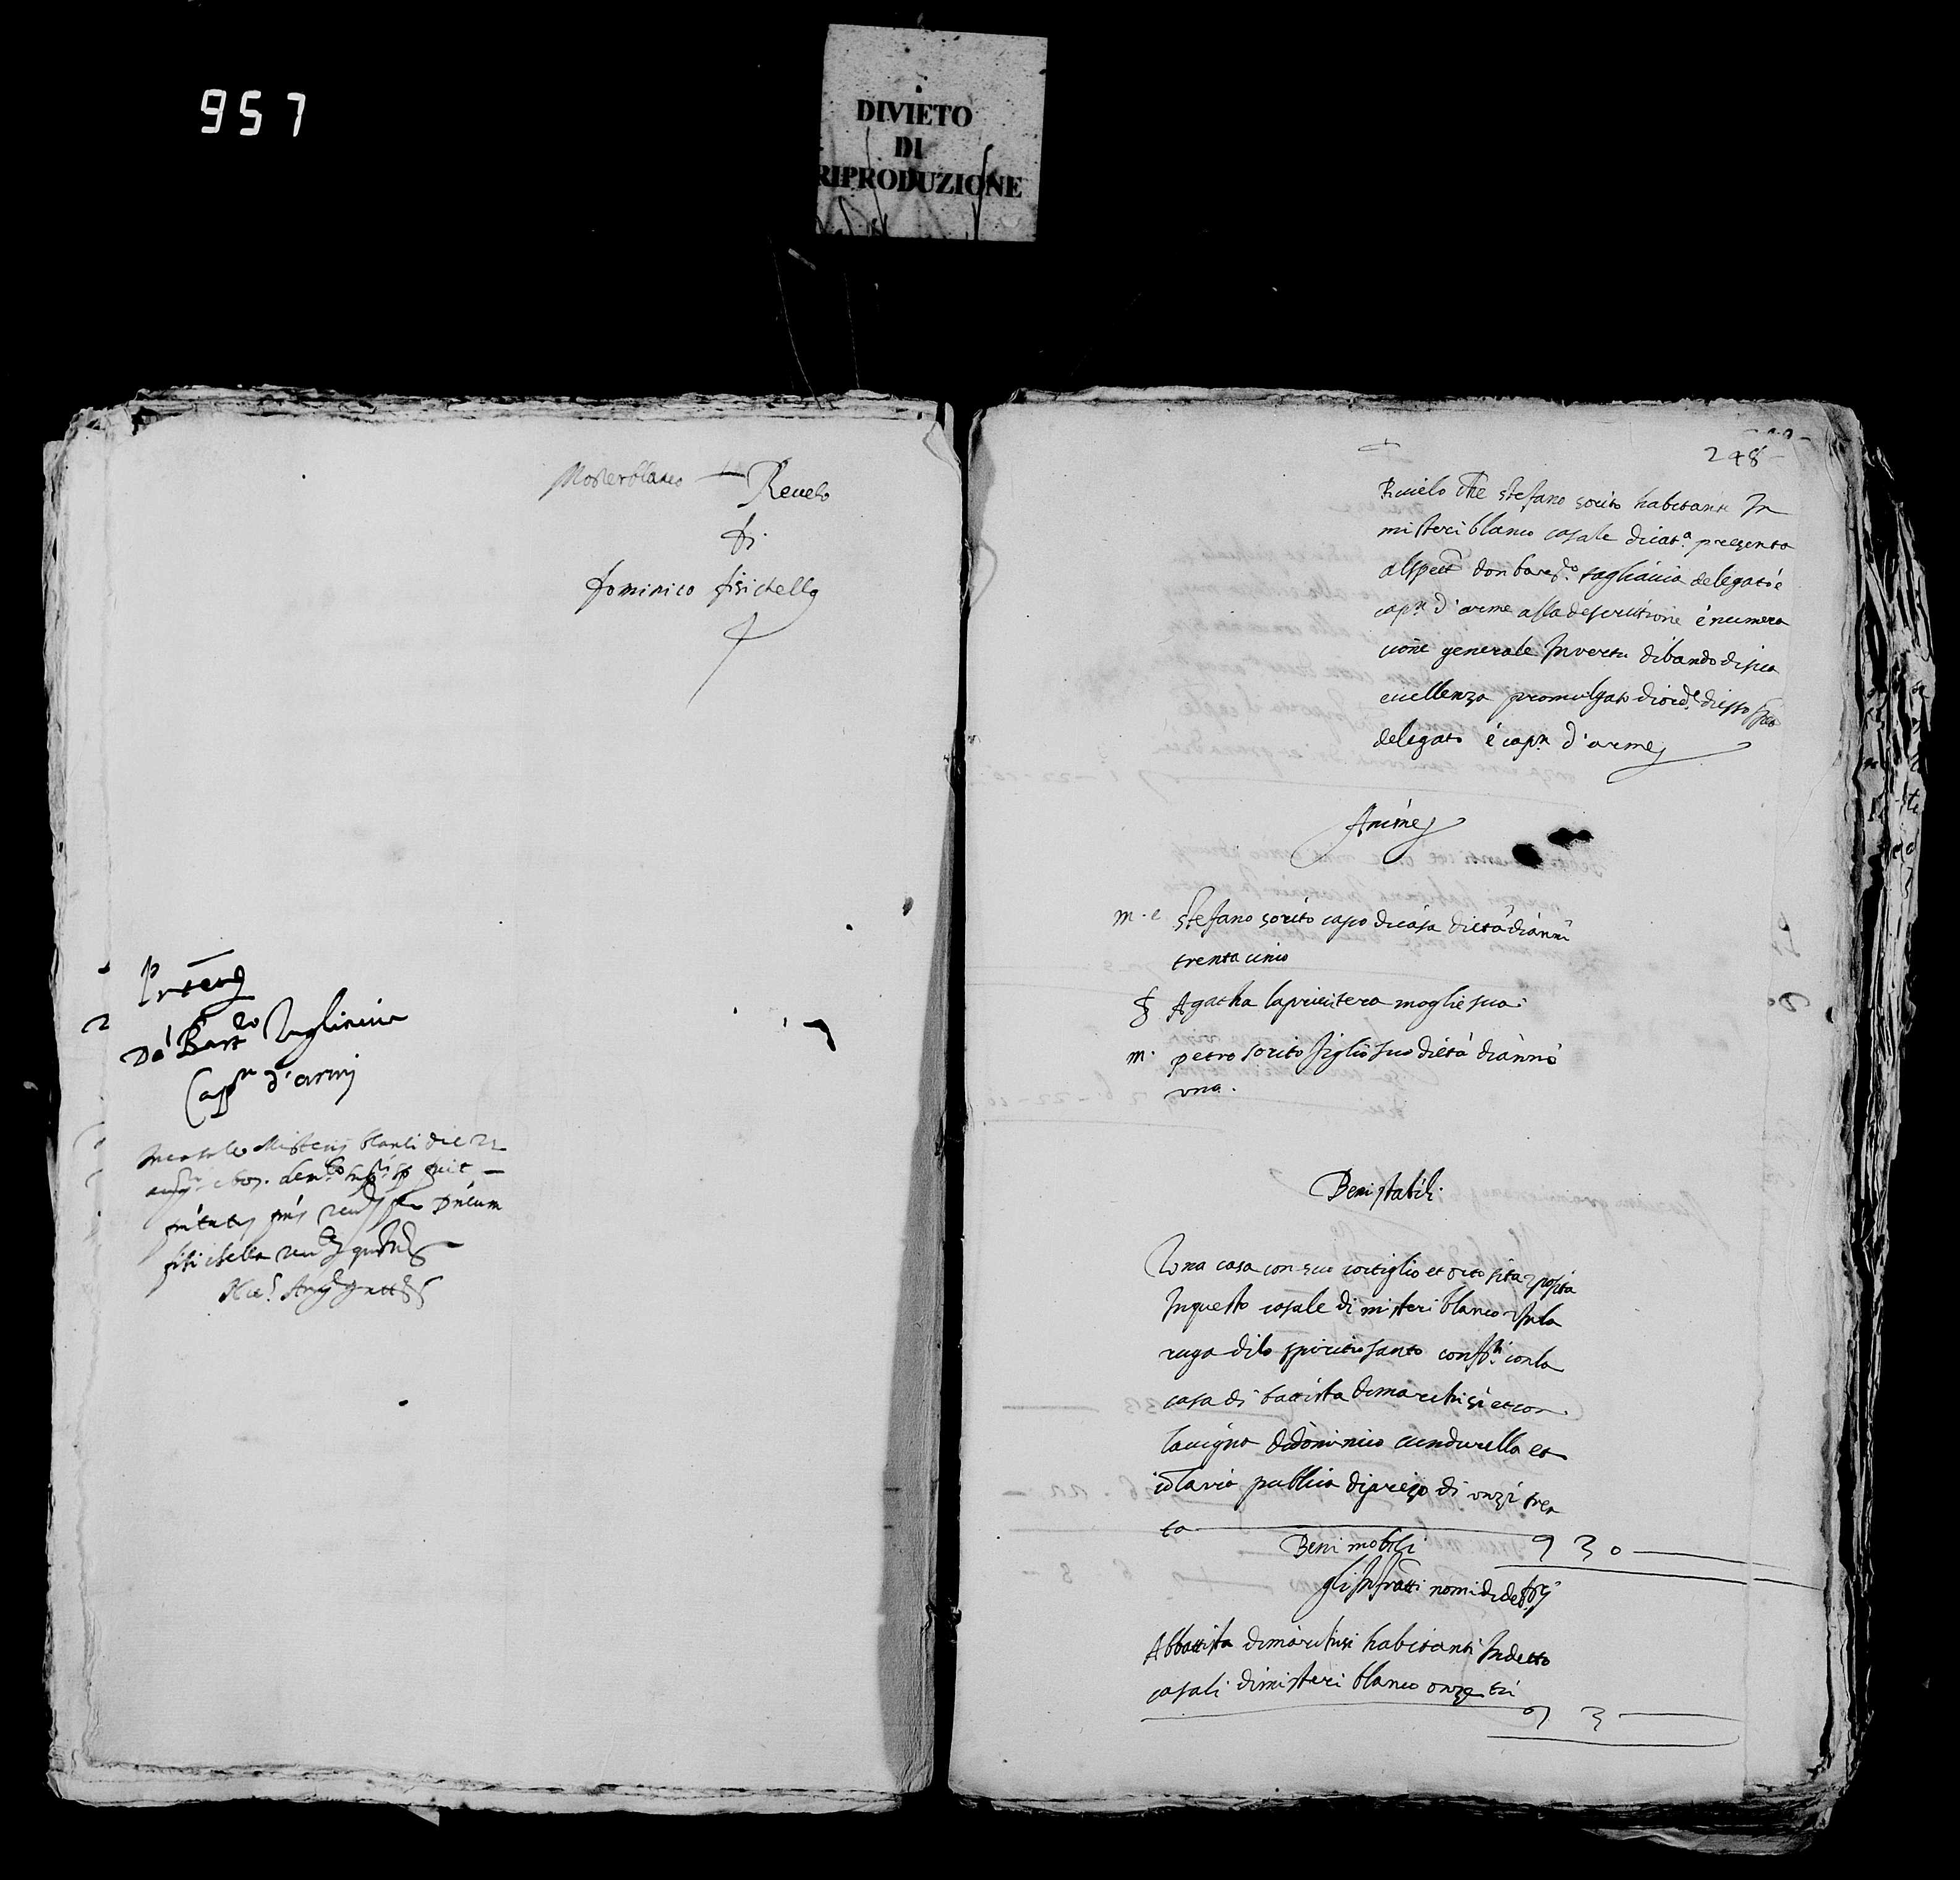 957
DIVIETO
DI
RIPRODUZIONE
Misterblanco Revelo
di
dominico fisichella
Da Bart.lo
Cap.n d'armi
blanci die 22
fisichella
248
Rivelo che stefano sorito habitanti In
misteri blanco casale di cat.a presenta
al spett. don bar.do tagliavia delegato è
cap.n d'arme alla descrittione è numera
cione generale In vertu di bando di sua
eccellenza promulgato di ord.e di esso spett.
delegato è cap.n d'arme
Anime
m. c stefano sorito capo di casa di eta di anni
trenta cinco
f Agatha la privitera moglie sua
m. petro sorito figlio suo di età di anno
uno.
Beni stabili
Una casa con suo cortiglio et orto sita et posita
In questo casale di misteri blanco In la
ruga di lo spirito santo conf.ti con la
casa di battista di marchisi et con
la vigna di dominico cundurella et
via publica di prezo di onzi tren
ta
Beni mobili 9 30
gli Infratti nomi di deb.ri
A battista di marchisi habitanti In detto
casali di misteri blanco onze tri
9 3